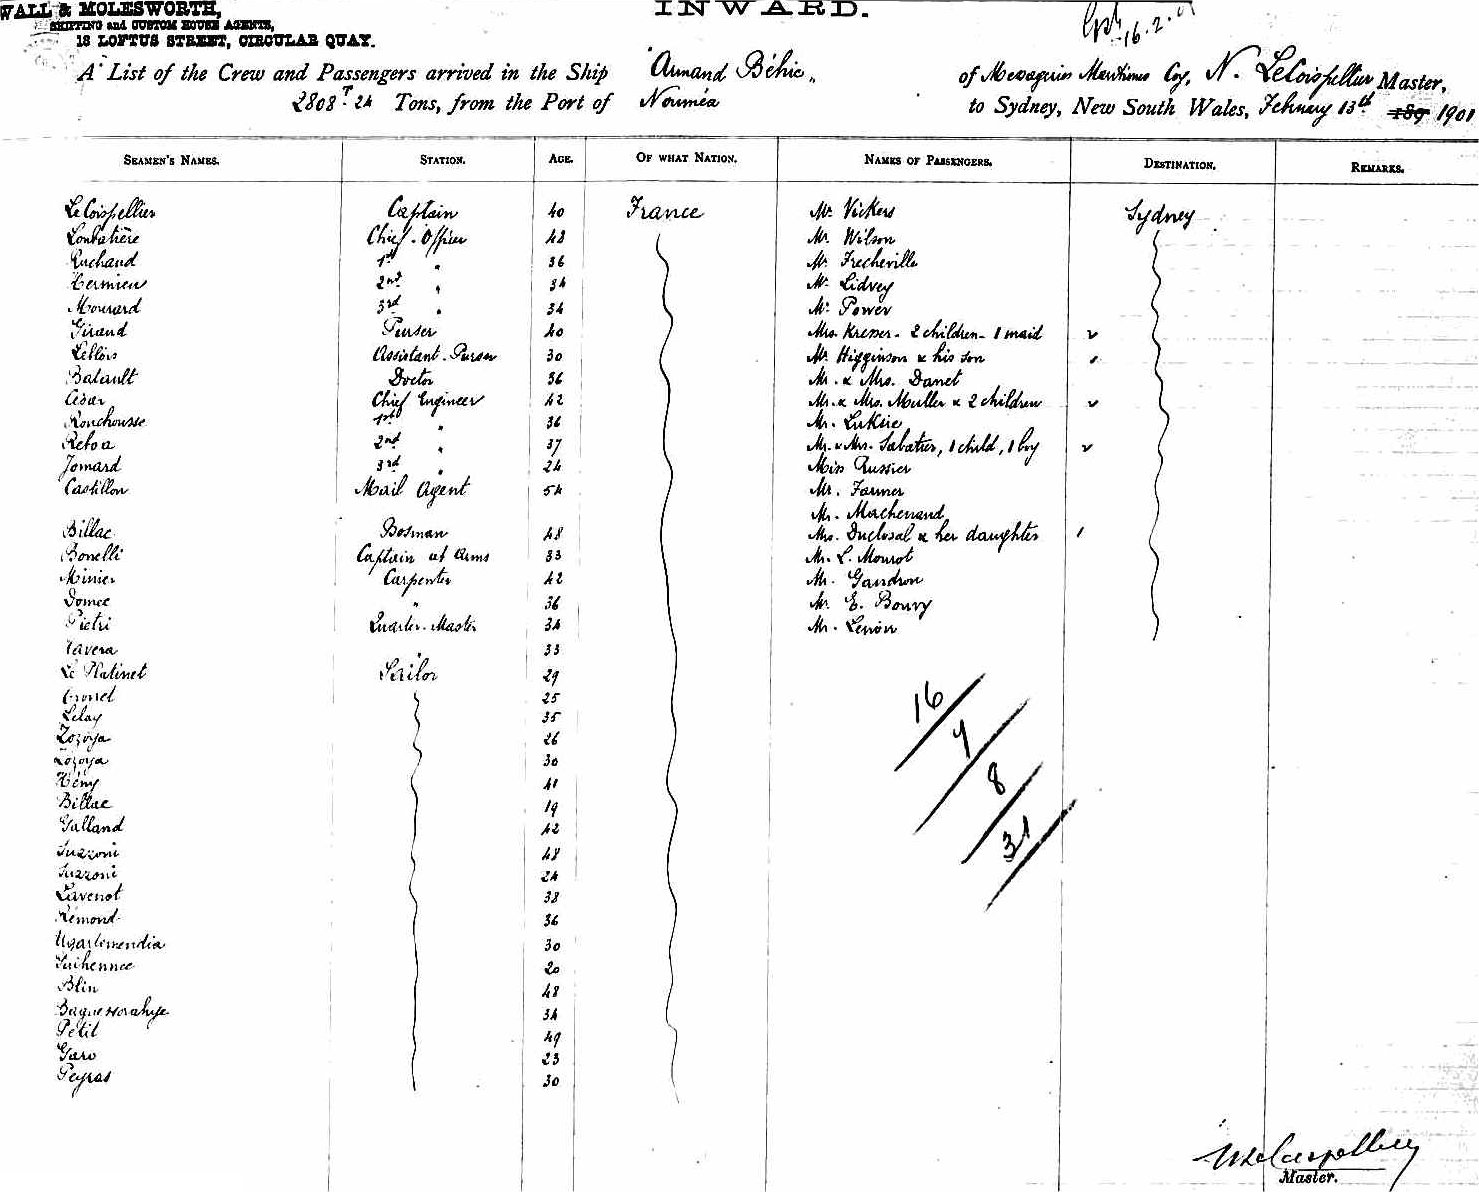 WALL & MOLESWORTH,
SHIPPING and CUSTOM HOUSE AGENTS,
18 LOFTUS STREET, CIRCULAR QUAY.
INWARD.
16.2.01
A List of the Crew and Passengers arrived in the Ship "Armand Béhic" of Messageries Maritimes Coy, N. LeCoispellier Master,
2808 T. 24 Tons, from the Port of Nouméa to Sydney, New South Wales, February 13th 189 1901
SEAMEN'S NAMES. STATION. AGE. OF WHAT NATION. NAMES OF PASSENGERS. DESTINATION. REMARKS.
LeCoispellier Captain 40 France Mr. Vickers Sydney
Loubatière Chief Officer 48 Mr. Wilson
Ruchaud 1st " 36 Mr. Frecheville
Hermieu 2nd " 34 Mr. Lidvey
Mourard 3rd " 34 Mr. Power
Giraud Purser 40 Mrs. Kresser - 2 children - 1 maid
Leblois Assistant Purser 30 Mr. Higginson & his son
Batault Doctor 36 Mr. & Mrs. Danet
César Chief Engineer 42 Mr. & Mrs. Muller & 2 children
Ronchousse 1st " 36 Mr. Luksie
Reboa 2nd " 37 Mr. & Mrs. Sabatier, 1 child, 1 boy
Jomard 3rd " 24 Miss Russier
Castillon Mail Agent 54 Mr. Farmer
Mr. Marchenand
Billac Bosman 48 Mrs. Duclosal & her daughter
Bonelli Captain at Arms 33 Mr. L. Mourot
Minier Carpenter 42 Mr. Gandron
Domec " 36 Mr. E. Bouvy
Pietri Quarter-Master 34 Mr. Lenoir
Tavera " 33
Le Platinet Sailor 29
25
Lelay 35
Zozoya 26
Lozoya 30
Hény 41
Billac 19
Galland 42
Suzzoni 48
Suzzoni 24
Lavenot 38
Rémond 36
Ugartemendia 30
Suihennec 20
Blin 48
34
Petit 49
Garo 23
Peyras 30
16
7
8
31
Master.